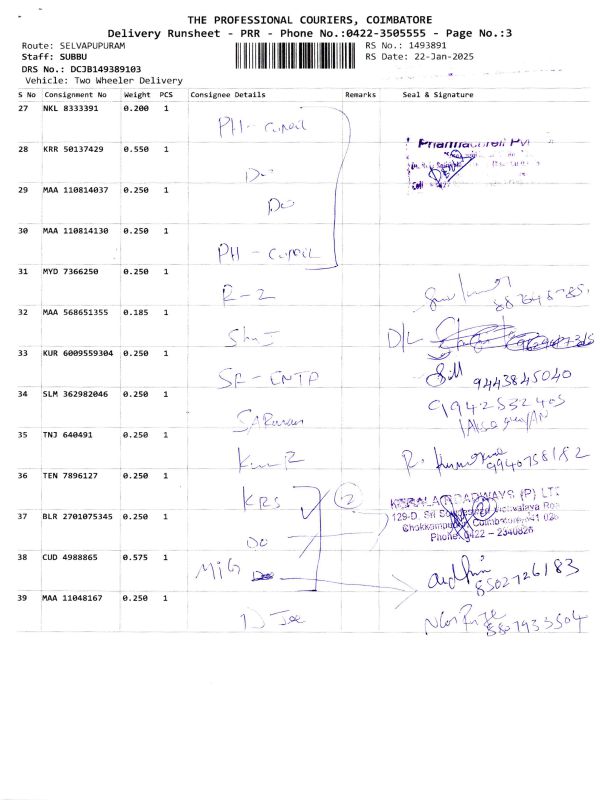 THE PROFESSIONAL COURIERS, COIMBATORE
Delivery Runsheet - PRR - Phone No.:0422-3505555 - Page No.:3
Route: SELVAPUPURAM
RS No.: 1493891
Staff: SUBBU
RS Date: 22-Jan-2025
DRS No.: DCJB149389103
Vehicle: Two Wheeler Delivery
S No Consignment No Weight PCS Consignee Details Remarks Seal & Signature
27 NKL 8333391 0.200 1
PH -
28 KRR 50137429 0.550 1
Do
29 MAA 110814037 0.250 1
Do
30 MAA 110814130 0.250 1
PH -
31 MYD 7366250 0.250 1
R - 2
32 MAA 568651355 0.185 1
D/L
33 KUR 6009559304 0.250 1
9443845040
34 SLM 362982046 0.250 1
9942532405
35 TNJ 640491 0.250 1
9940758182
36 TEN 7896127 0.250 1
KRS 2
KERALA ROADWAYS (P) LTD
37 BLR 2701075345 0.250 1
Do
Phone: 0422 - 2340826
38 CUD 4988865 0.575 1
MiG
8502726183
39 MAA 11048167 0.250 1
8807933504